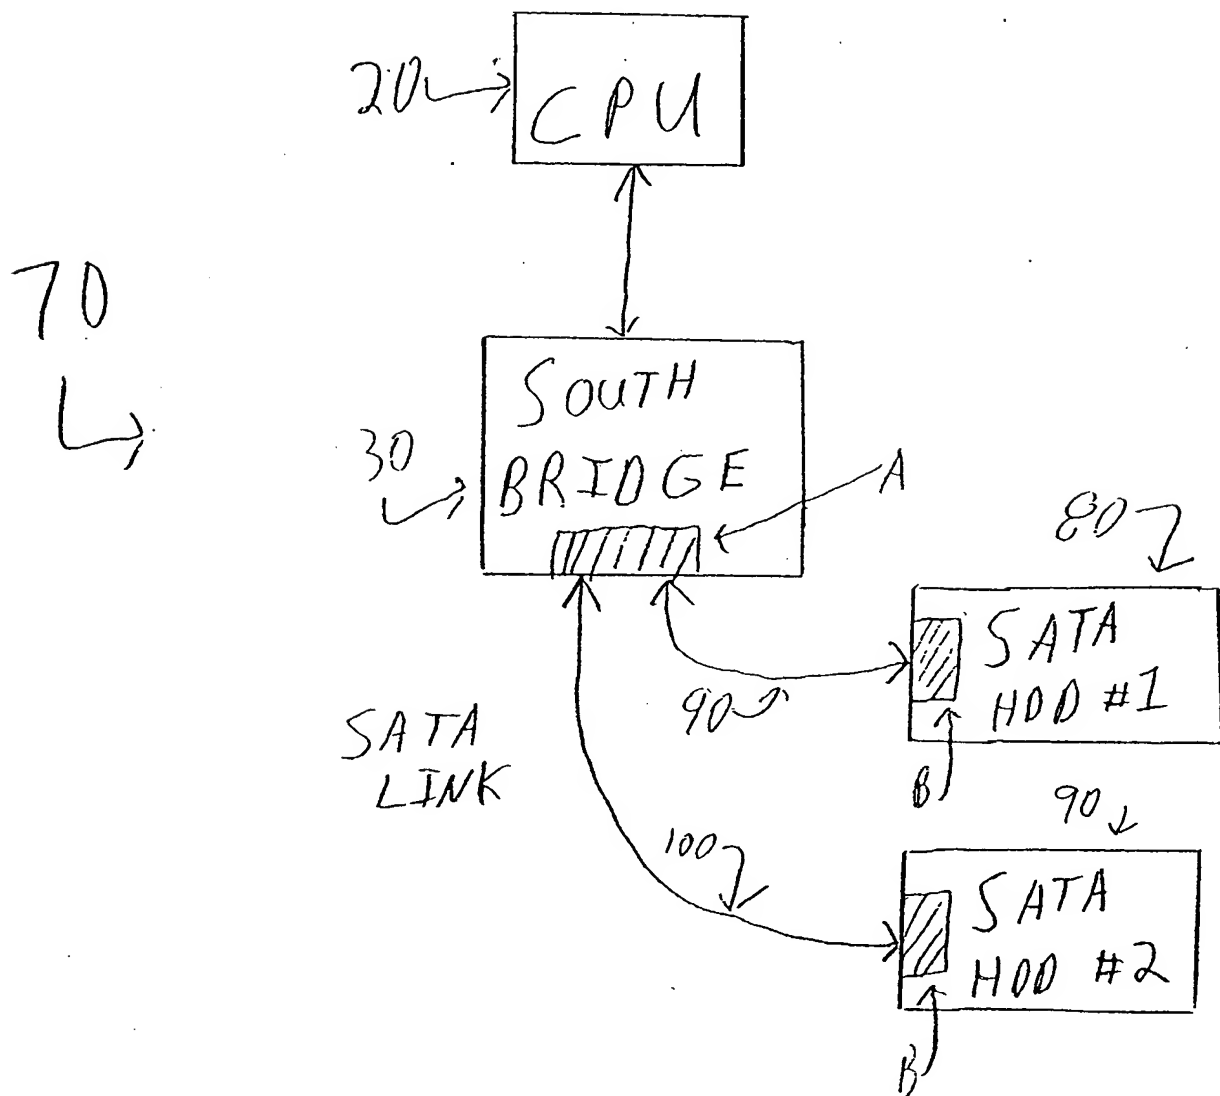 CPU
20
70
SOUTH
BRIDGE
30
A
80
SATA
HDD #1
90
B
SATA
LINK
90
100
SATA
HDD #2
B